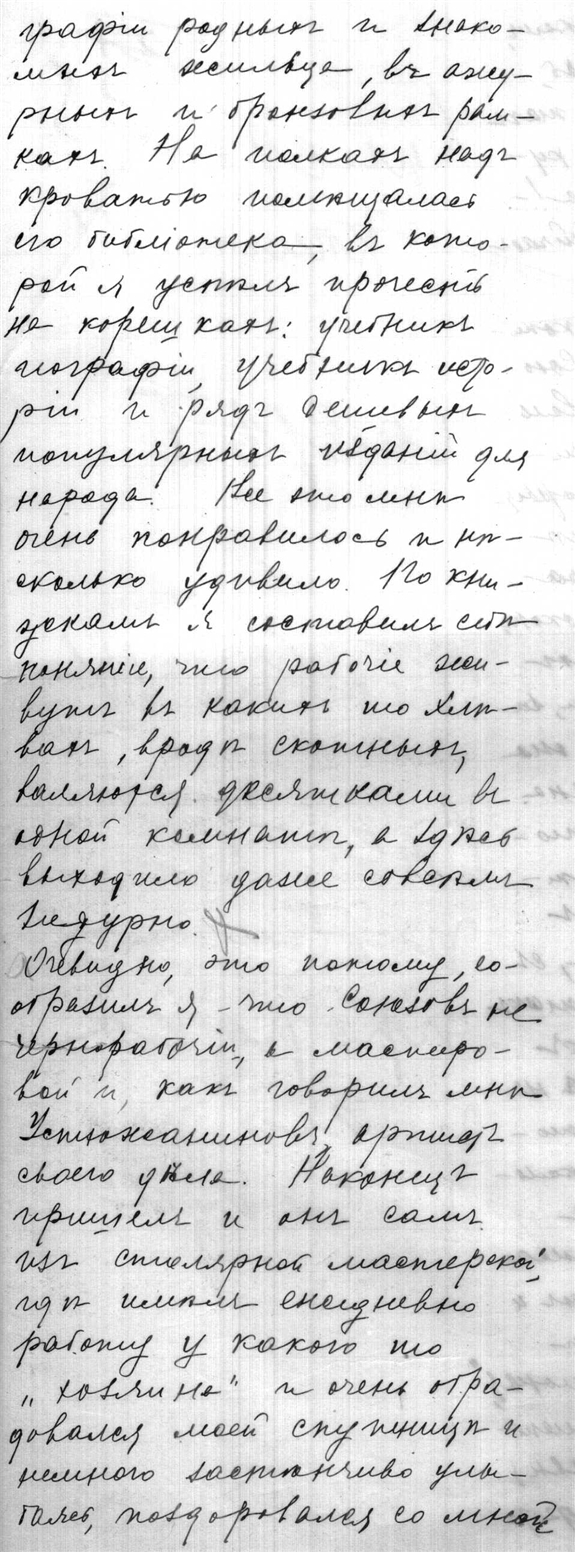 графіи родныхъ и знако-
мыхъ жильца, въ ажу-
рныхъ и бронзовыхъ рам-
кахъ. На полкахъ надъ
кроватью помѣщалась
его библіотека, въ кото-
рой я успѣлъ прочесть
на корешкахъ: учебникъ
географіи, учебникъ исто-
ріи и рядъ дешевыхъ
популярныхъ изданій для
народа. Все это мнѣ
очень понравилось и нѣ-
сколько удивило. По кни-
жкамъ я составилъ себѣ
понятіе, что рабочіе жи-
вутъ въ какихъ то хлѣ-
вахъ, вродѣ скотныхъ,
валяются десятками въ
одной комнатѣ, а здѣсь
выходило даже совсѣмъ
недурно.
Очевидно, это потому, со-
образилъ я - что Союзовъ не
чернорабочій, а мастеро-
вой и, какъ говорилъ мнѣ
Устюжаниновъ, артистъ
своего дѣла. Наконецъ
пришелъ и онъ самъ
изъ столярной мастерской,
гдѣ имѣлъ ежедневно
работу у какого то
„хозяина" и очень обра-
довался моей спутницѣ и
немного застѣнчиво улы-
баясь, поздоровался со мной